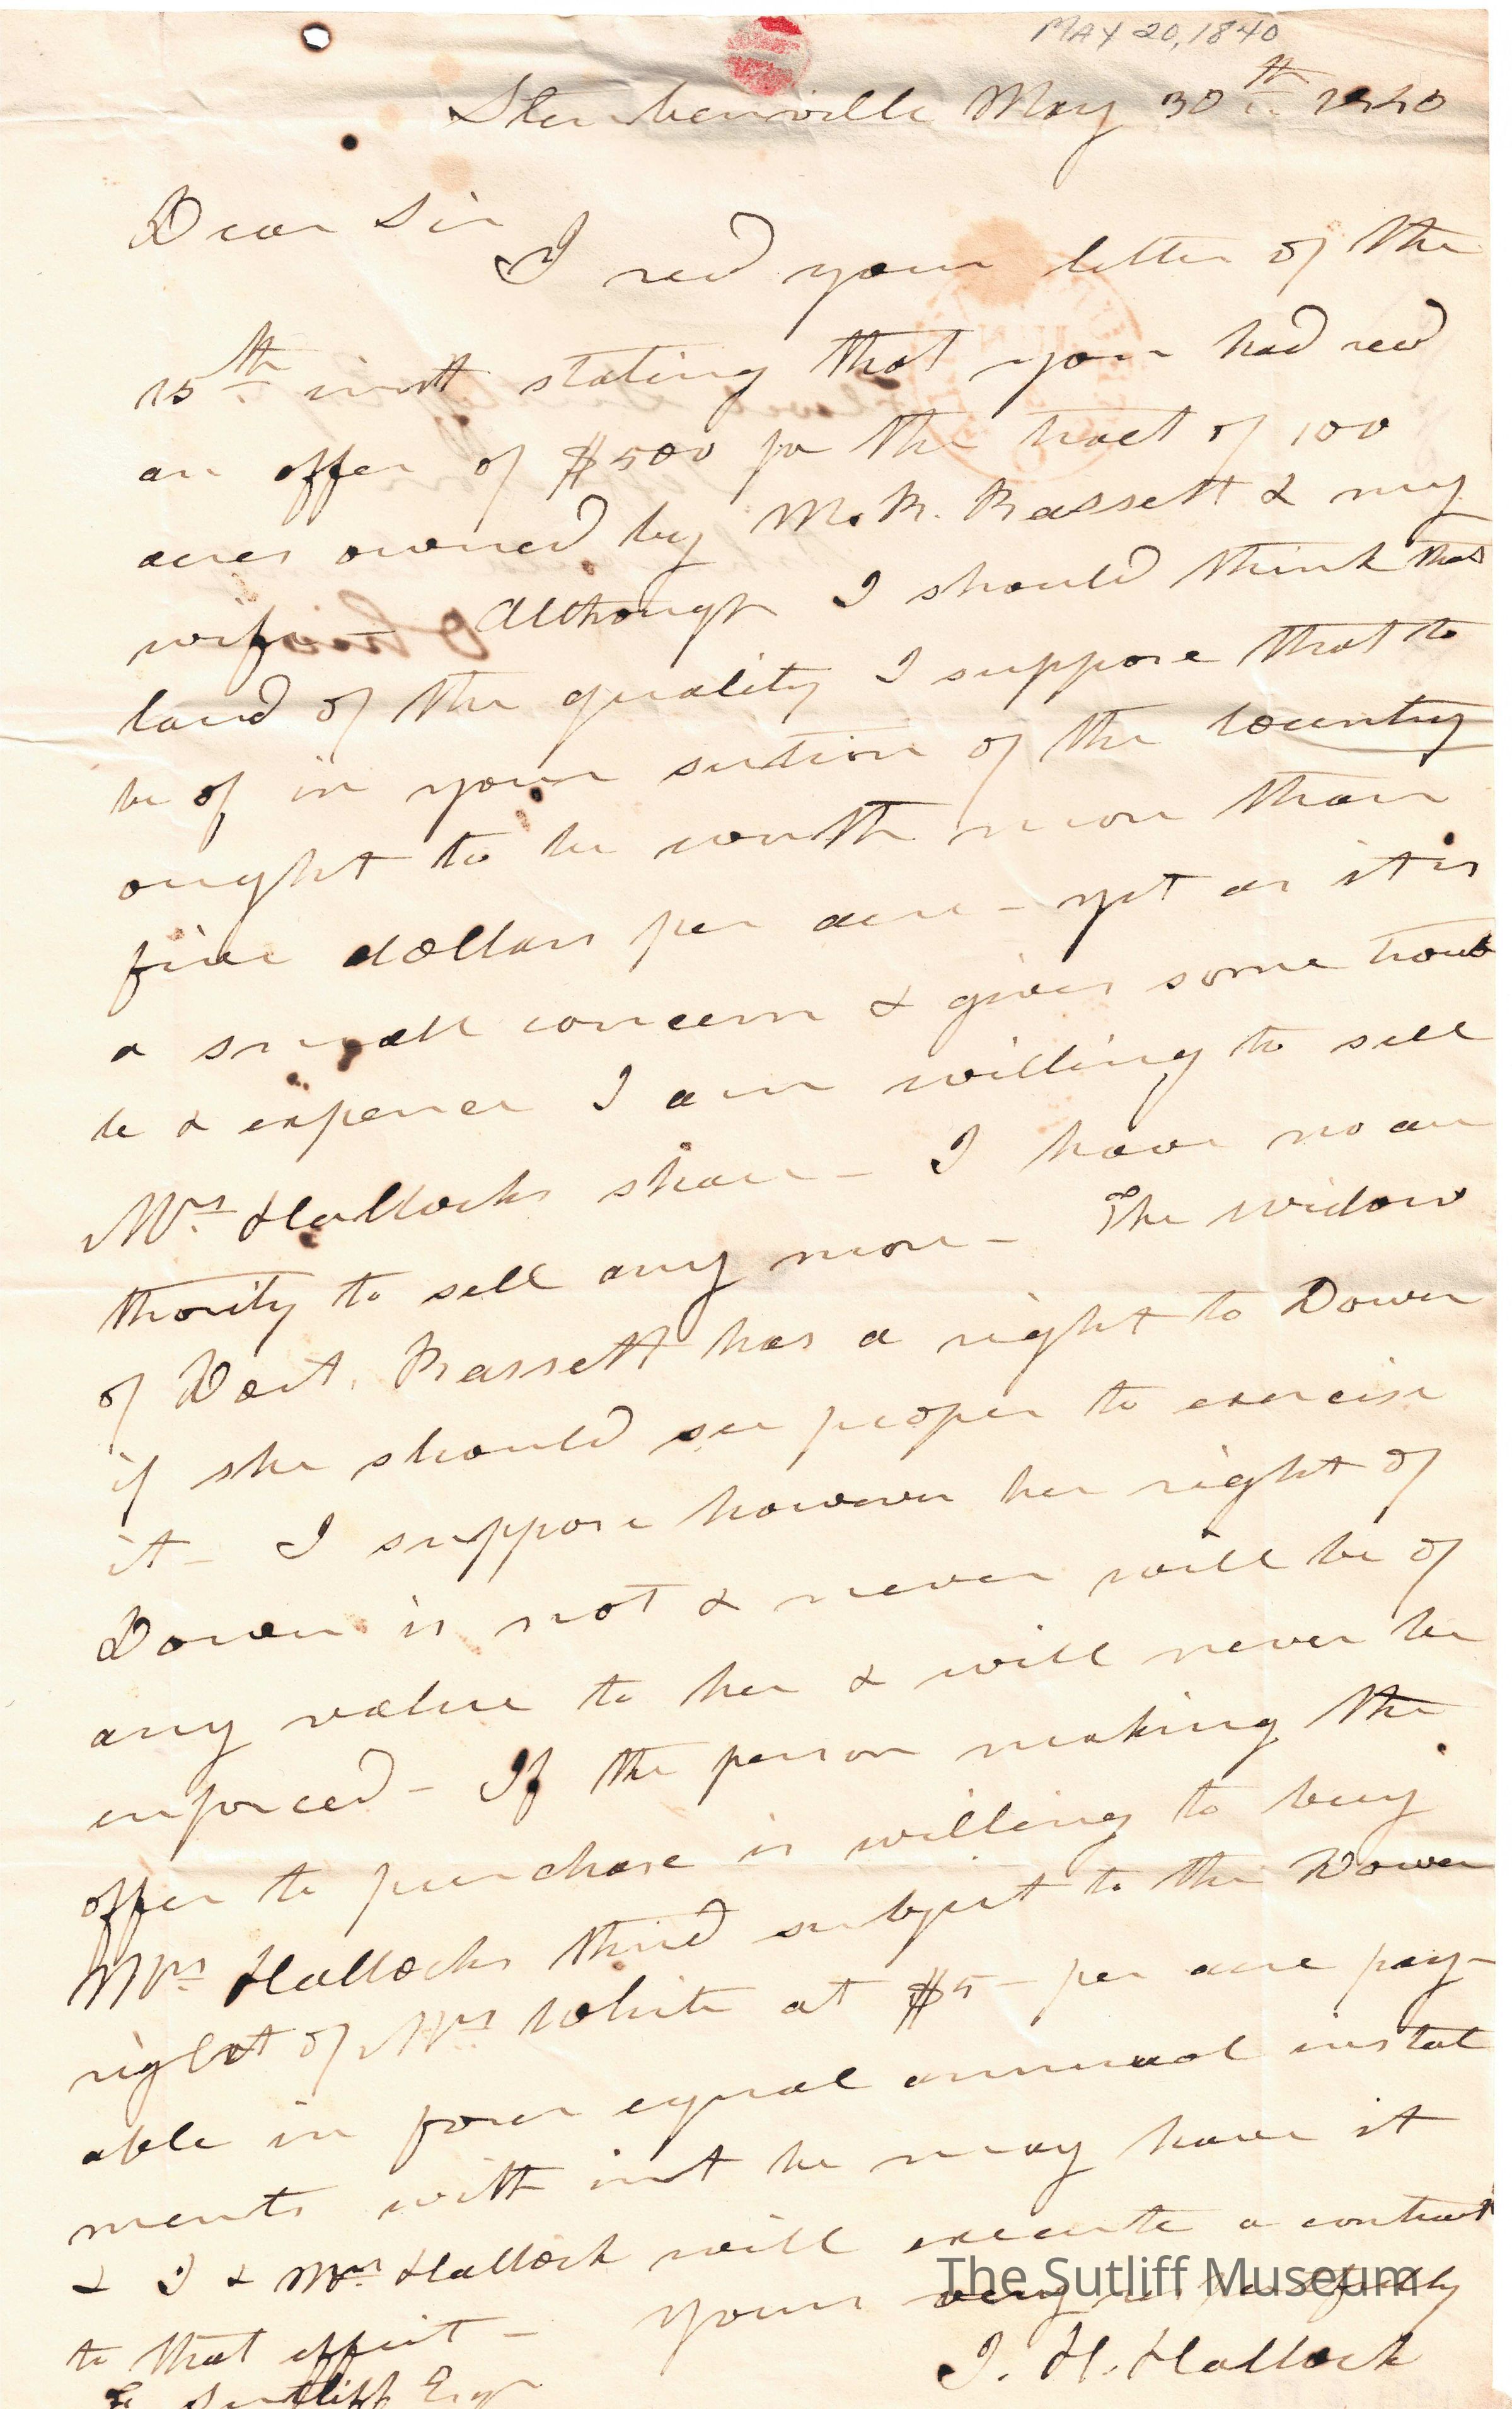 MAY 20, 1840
Steubenville May 30th 1840
Dear Sir
I recd your letter of the
15th inst stating that you had recd
an offer of $500 for the tract of 100
acres owned by M. B. Bassett & my
wife - Although I should think that
land of the quality I suppose that to
be of in your section of the Country
ought to be worth more than
five dollars per acre - yet as it is
a small concern & gives some troub
le & expense I am willing to sell
Mrs Hallocks share - I have no au
thority to sell any more - The widow
of Doct. Bassett has a right to Dower
if she should see proper to exercise
it - I suppose however her right of
Dower is not & never will be of
any value to her & will never be
enforced - If the person making the
offer to purchase is willing to buy
Mrs Hallocks third subject to the Dower
right of Mrs White at $5 - per acre pay-
able in four equal annual instal
ments with int he may have it
& I & Mrs Hallock will execute a contract
to that effect - Yours very respectfully
J. H. Hallock
Sutliff Esqr
The Sutliff Museum